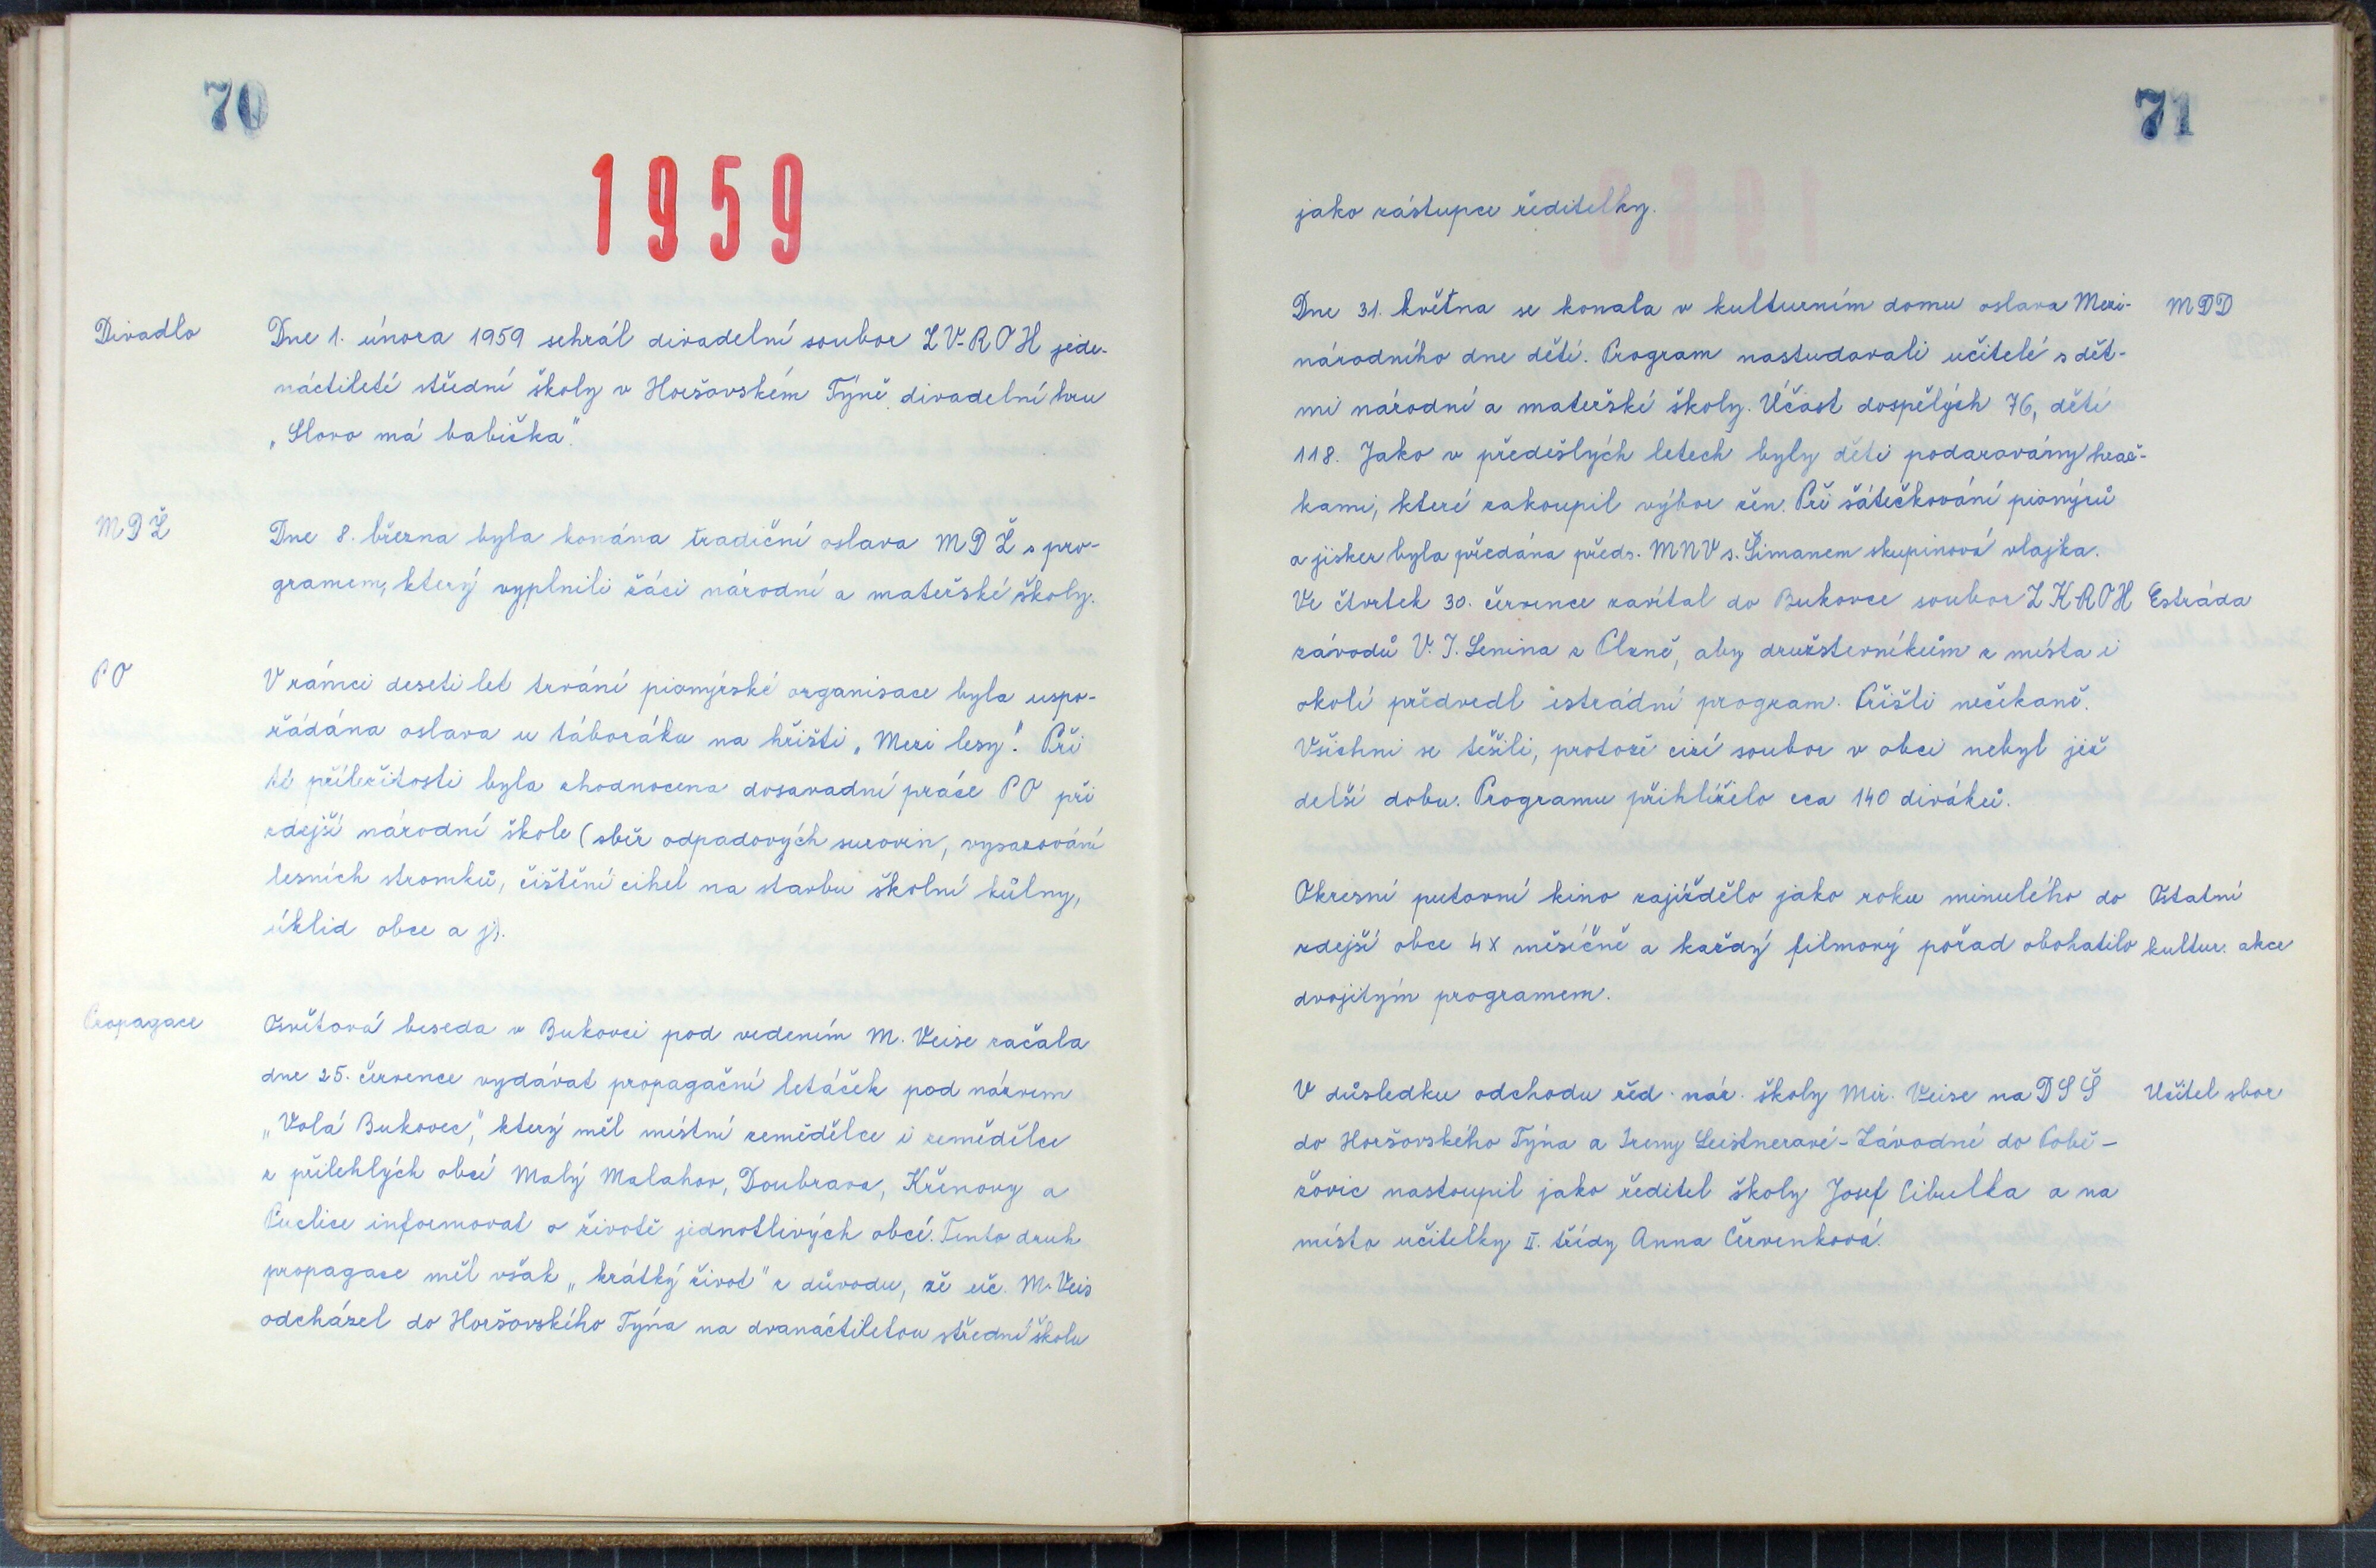 70
1959
Divadlo
Dne 1. února 1959 sehrál divadelní soubor ZV-ROH jede-
náctileté střední školy v Horšovském Týně divadelní hru
„Slovo má babička".
MDŽ
Dne 8. března byla konána tradiční oslava MDŽ s pro-
gramem, který vyplnili žáci národní a mateřské školy.
PO
V rámci deseti let trvání pionýrské organisace byla uspo-
řádána oslava u táboráku na hřišti „Mezi lesy". Při
té příležitosti byla zhodnocena dosavadní práce PO při
zdejší národní škole (sběr odpadových surovin, vysazování
lesních stromků, čištění cihel na stavbu školní kůlny,
úklid obce a j).
Propagace
Osvětová beseda v Bukovci pod vedením M. Veise začala
dne 25. července vydávat propagační letáček pod názvem
„Volá Bukovec", který měl místní zemědělce i zemědělce
z přilehlých obcí Malý Malahov, Doubrava, Křenovy a
Puclice informovat o životě jednotlivých obcí. Tento druh
propagace měl však „krátký život" z důvodu, že uč. M. Veis
odcházel do Horšovského Týna na dvanáctiletou střední školu
71
jako zástupce ředitelky.
Dne 31. května se konala v kulturním domu oslava Mezi- MDD
národního dne dětí. Program nastudovali učitelé s dět-
mi národní a mateřské školy. Účast dospělých 76, dětí
118. Jako v předešlých letech byly děti podarovány hrač-
kami, které zakoupil výbor žen. Při šátečkování pionýrů
a jisker byla předána předs. MNV s. Šimanem skupinová vlajka.
Ve čtvrtek 30. července zavítal do Bukovce soubor ZK-ROH Estráda
závodů V. I. Lenina z Plzně, aby družstevníkům z místa i
okolí předvedl estrádní program. Přišli nečekaně.
Všichni se těšili, protože cizí soubor v obci nebyl již
delší dobu. Programu přihlíželo cca 140 diváků.
Okresní putovní kino zajíždělo jako roku minulého do Ostatní
zdejší obce 4x měsíčně a každý filmový pořad obohatilo kultur. akce
dvojitým programem.
V důsledku odchodu řed. nár. školy Mir. Veise na DSŠ Učitel sbor
do Horšovského Týna a Ireny Leistnerové-Závodné do Pobě-
žovic nastoupil jako ředitel školy Josef Cibulka a na
místo učitelky II. třídy Anna Červenková.